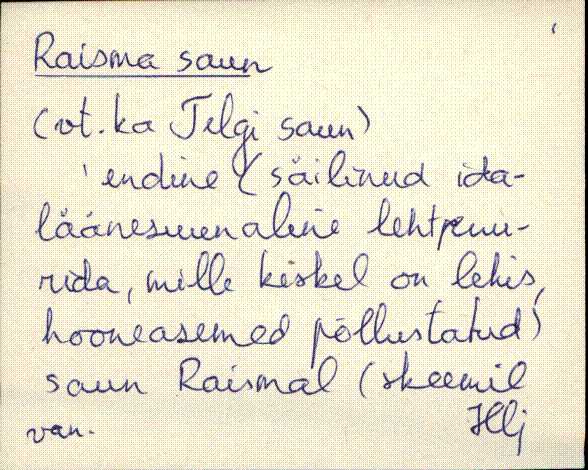 Raisma saun
(vt. ka Telgi saun)
'endine (säilinud ida-
läänesuunaline lehtpuu-
rida, mille keskel on lehis,
hooneasemed põllustatud)
saun Raismal (skeemil
van. Hlj